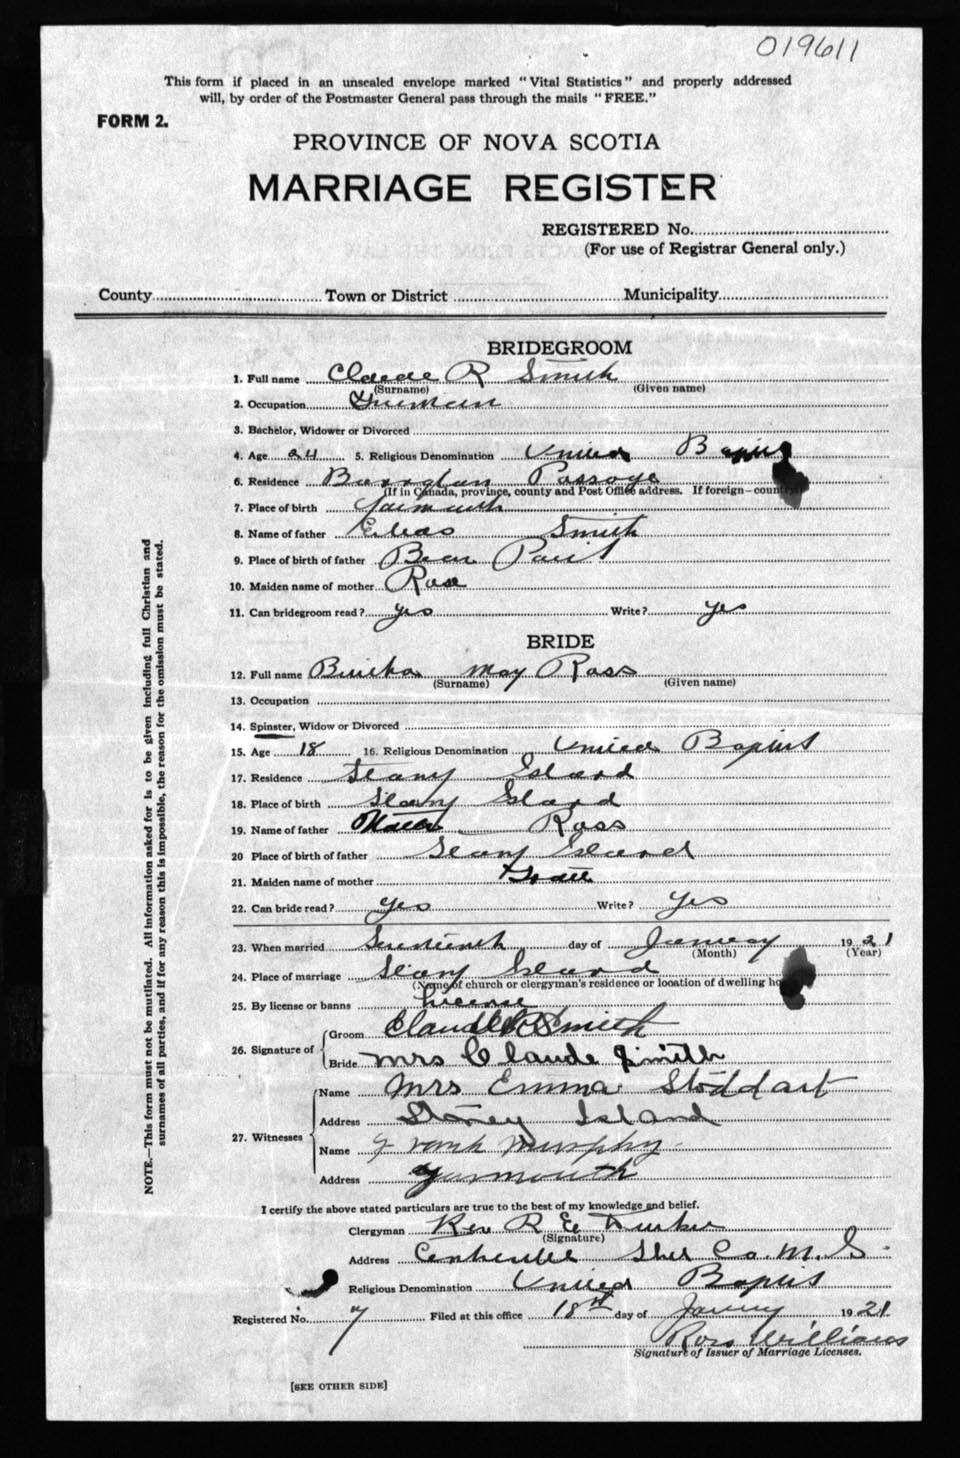 019611
This form if placed in an unsealed envelope marked "Vital Statistics" and properly addressed
will, by order of the Postmaster General pass through the mails "FREE."
FORM 2.
PROVINCE OF NOVA SCOTIA
MARRIAGE REGISTER
REGISTERED No.
(For use of Registrar General only.)
County Town or District Municipality
BRIDEGROOM
1. Full name Claude R Smith
(Surname) (Given name)
2. Occupation
3. Bachelor, Widower or Divorced
4. Age 24 5. Religious Denomination United Baptist
6. Residence Passage
(If in Canada, province, county and Post Office address. If foreign—country
7. Place of birth Yarmouth
8. Name of father Smith
9. Place of birth of father Bear
10. Maiden name of mother Rose
11. Can bridegroom read? yes Write? yes
BRIDE
12. Full name May Ross
(Surname) (Given name)
13. Occupation
14. Spinster, Widow or Divorced
15. Age 18 16. Religious Denomination United Baptist
17. Residence Stony Island
18. Place of birth Stony Island
19. Name of father Ross
20 Place of birth of father Stony Island
21. Maiden name of mother
22. Can bride read? yes Write? yes
23. When married day of January 1921
(Month) (Year)
24. Place of marriage Stony Island
(Name of church or clergyman's residence or location of dwelling ho
25. By license or banns License
26. Signature of Groom Claude R Smith
Bride Mrs Claude Smith
27. Witnesses Name Mrs Emma Stoddart
Address Stoney Island
Name Frank Murphy
Address Yarmouth
I certify the above stated particulars are true to the best of my knowledge and belief.
Clergyman Rev R E
(Signature)
Address Shel Co. N. S.
Religious Denomination United Baptist
Registered No. 7 Filed at this office 18th day of January 1921
Ross Williams
Signature of Issuer of Marriage Licenses.
[SEE OTHER SIDE]
NOTE.—This form must not be mutilated. All information asked for is to be given including full Christian and
surnames of all parties, and if for any reason this is impossible, the reason for the omission must be stated.